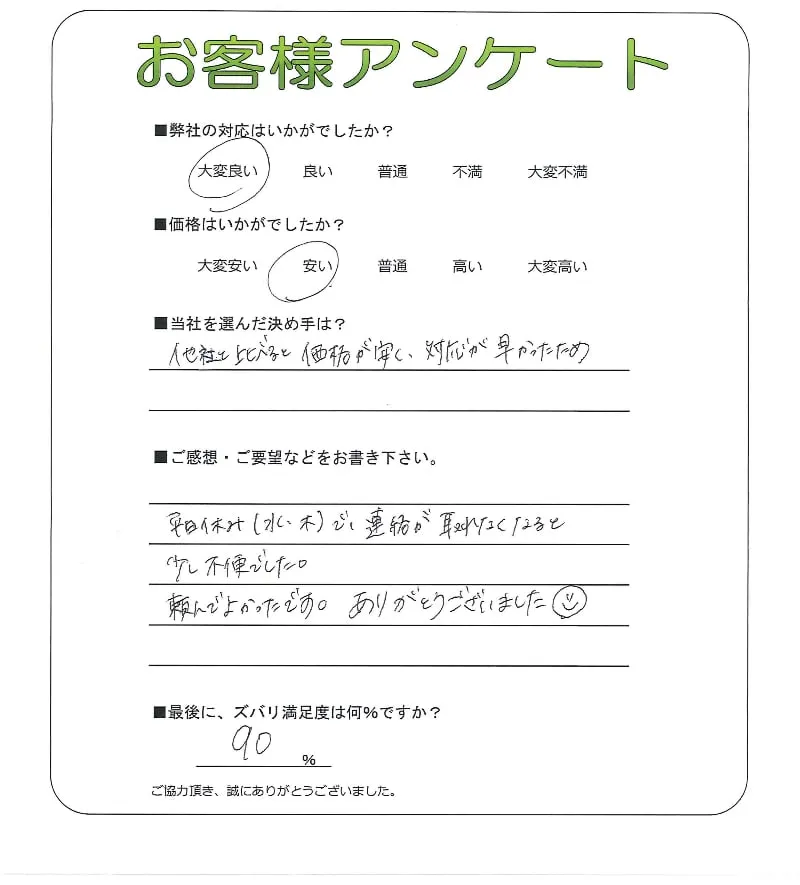 お客様アンケート
■弊社の対応はいかがでしたか？
大変良い 良い 普通 不満 大変不満
■価格はいかがでしたか？
大変安い 安い 普通 高い 大変高い
■当社を選んだ決め手は？
他社と比べると価格が安く、対応が早かったため
■ご感想・ご要望などをお書き下さい。
平日休み(水、木)で、連絡が取れなくなると
少し不便でした。
頼んでよかったです。ありがとうございました
■最後に、ズバリ満足度は何％ですか？
90 %
ご協力頂き、誠にありがとうございました。